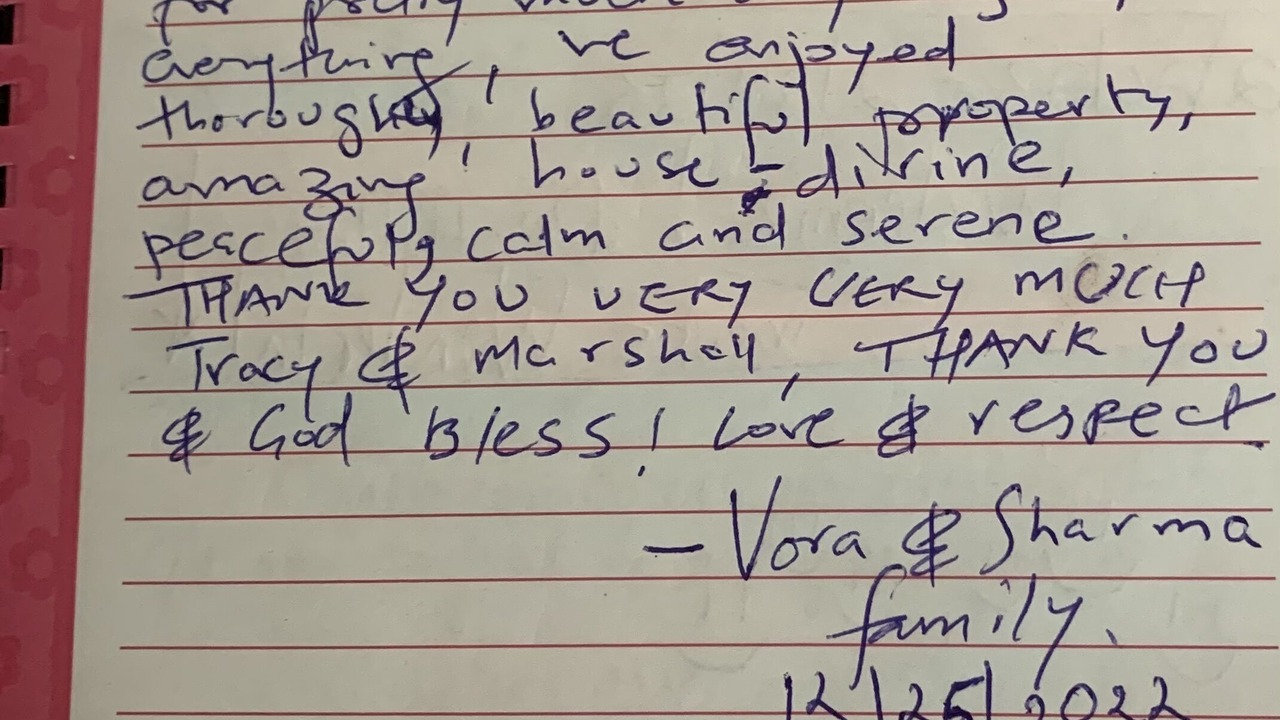 everything, we enjoyed
thoroughly, beautiful property,
amazing house - divine,
peaceful, calm and serene.
THANK YOU VERY VERY MUCH
Tracy & Marshall, THANK YOU
& God Bless! Love & respect
- Vora & Sharma
family.
12/25/2022